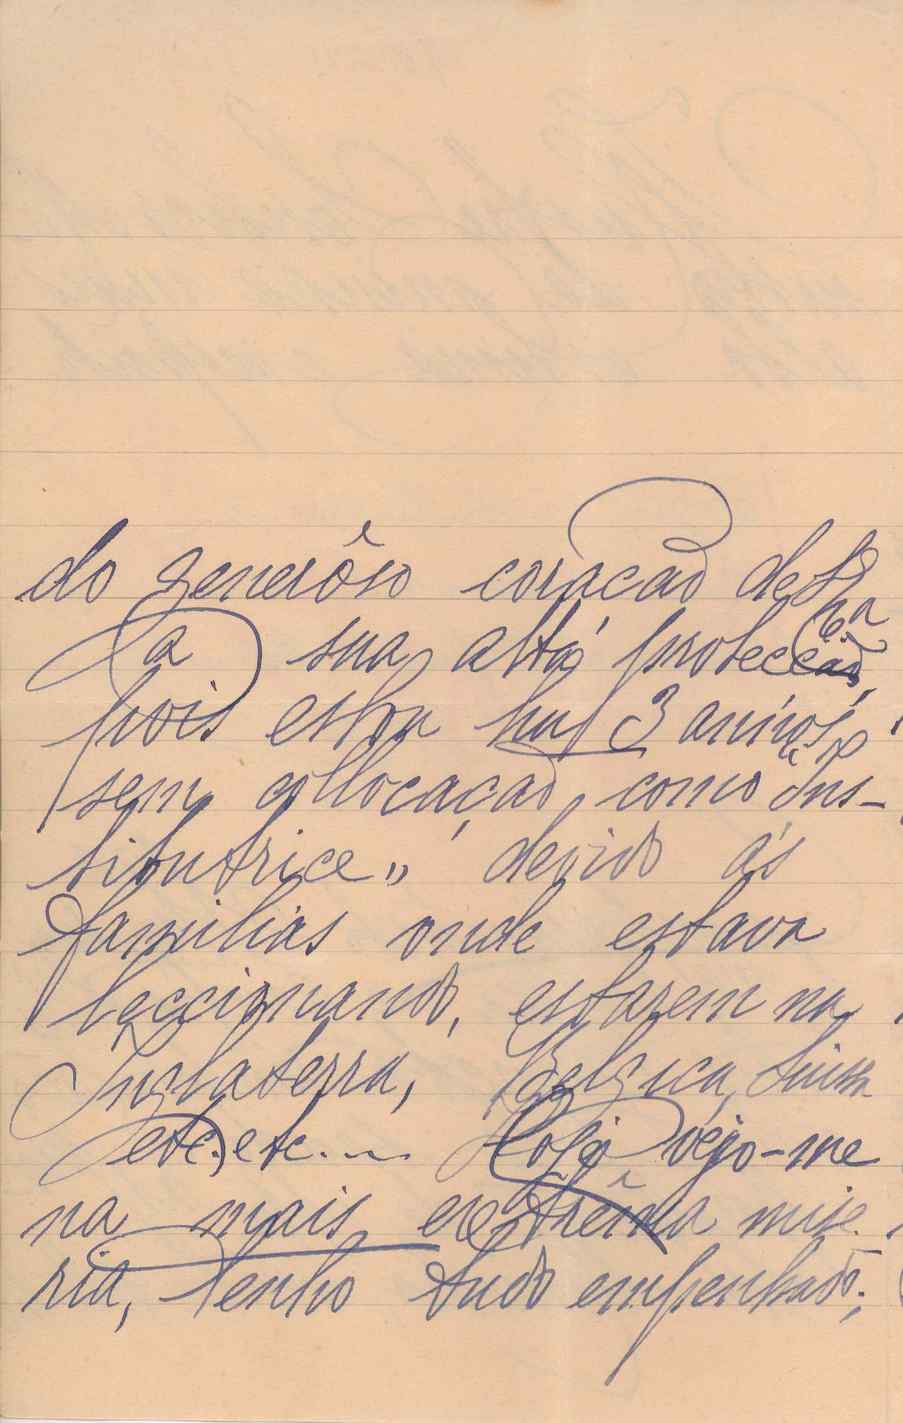 do generôso coração de V.
Exa a sua alta protecção,
pois estou ha 3 annos,
sem collocação, como "Ins-
titutrice", devido ás
familias onde estava
leccionando, estarem na
Inglaterra, Belgica, Suissa
etc. etc... Hoje vejo-me
na mais extrêma mise
ria, tenho tudo empenhado;